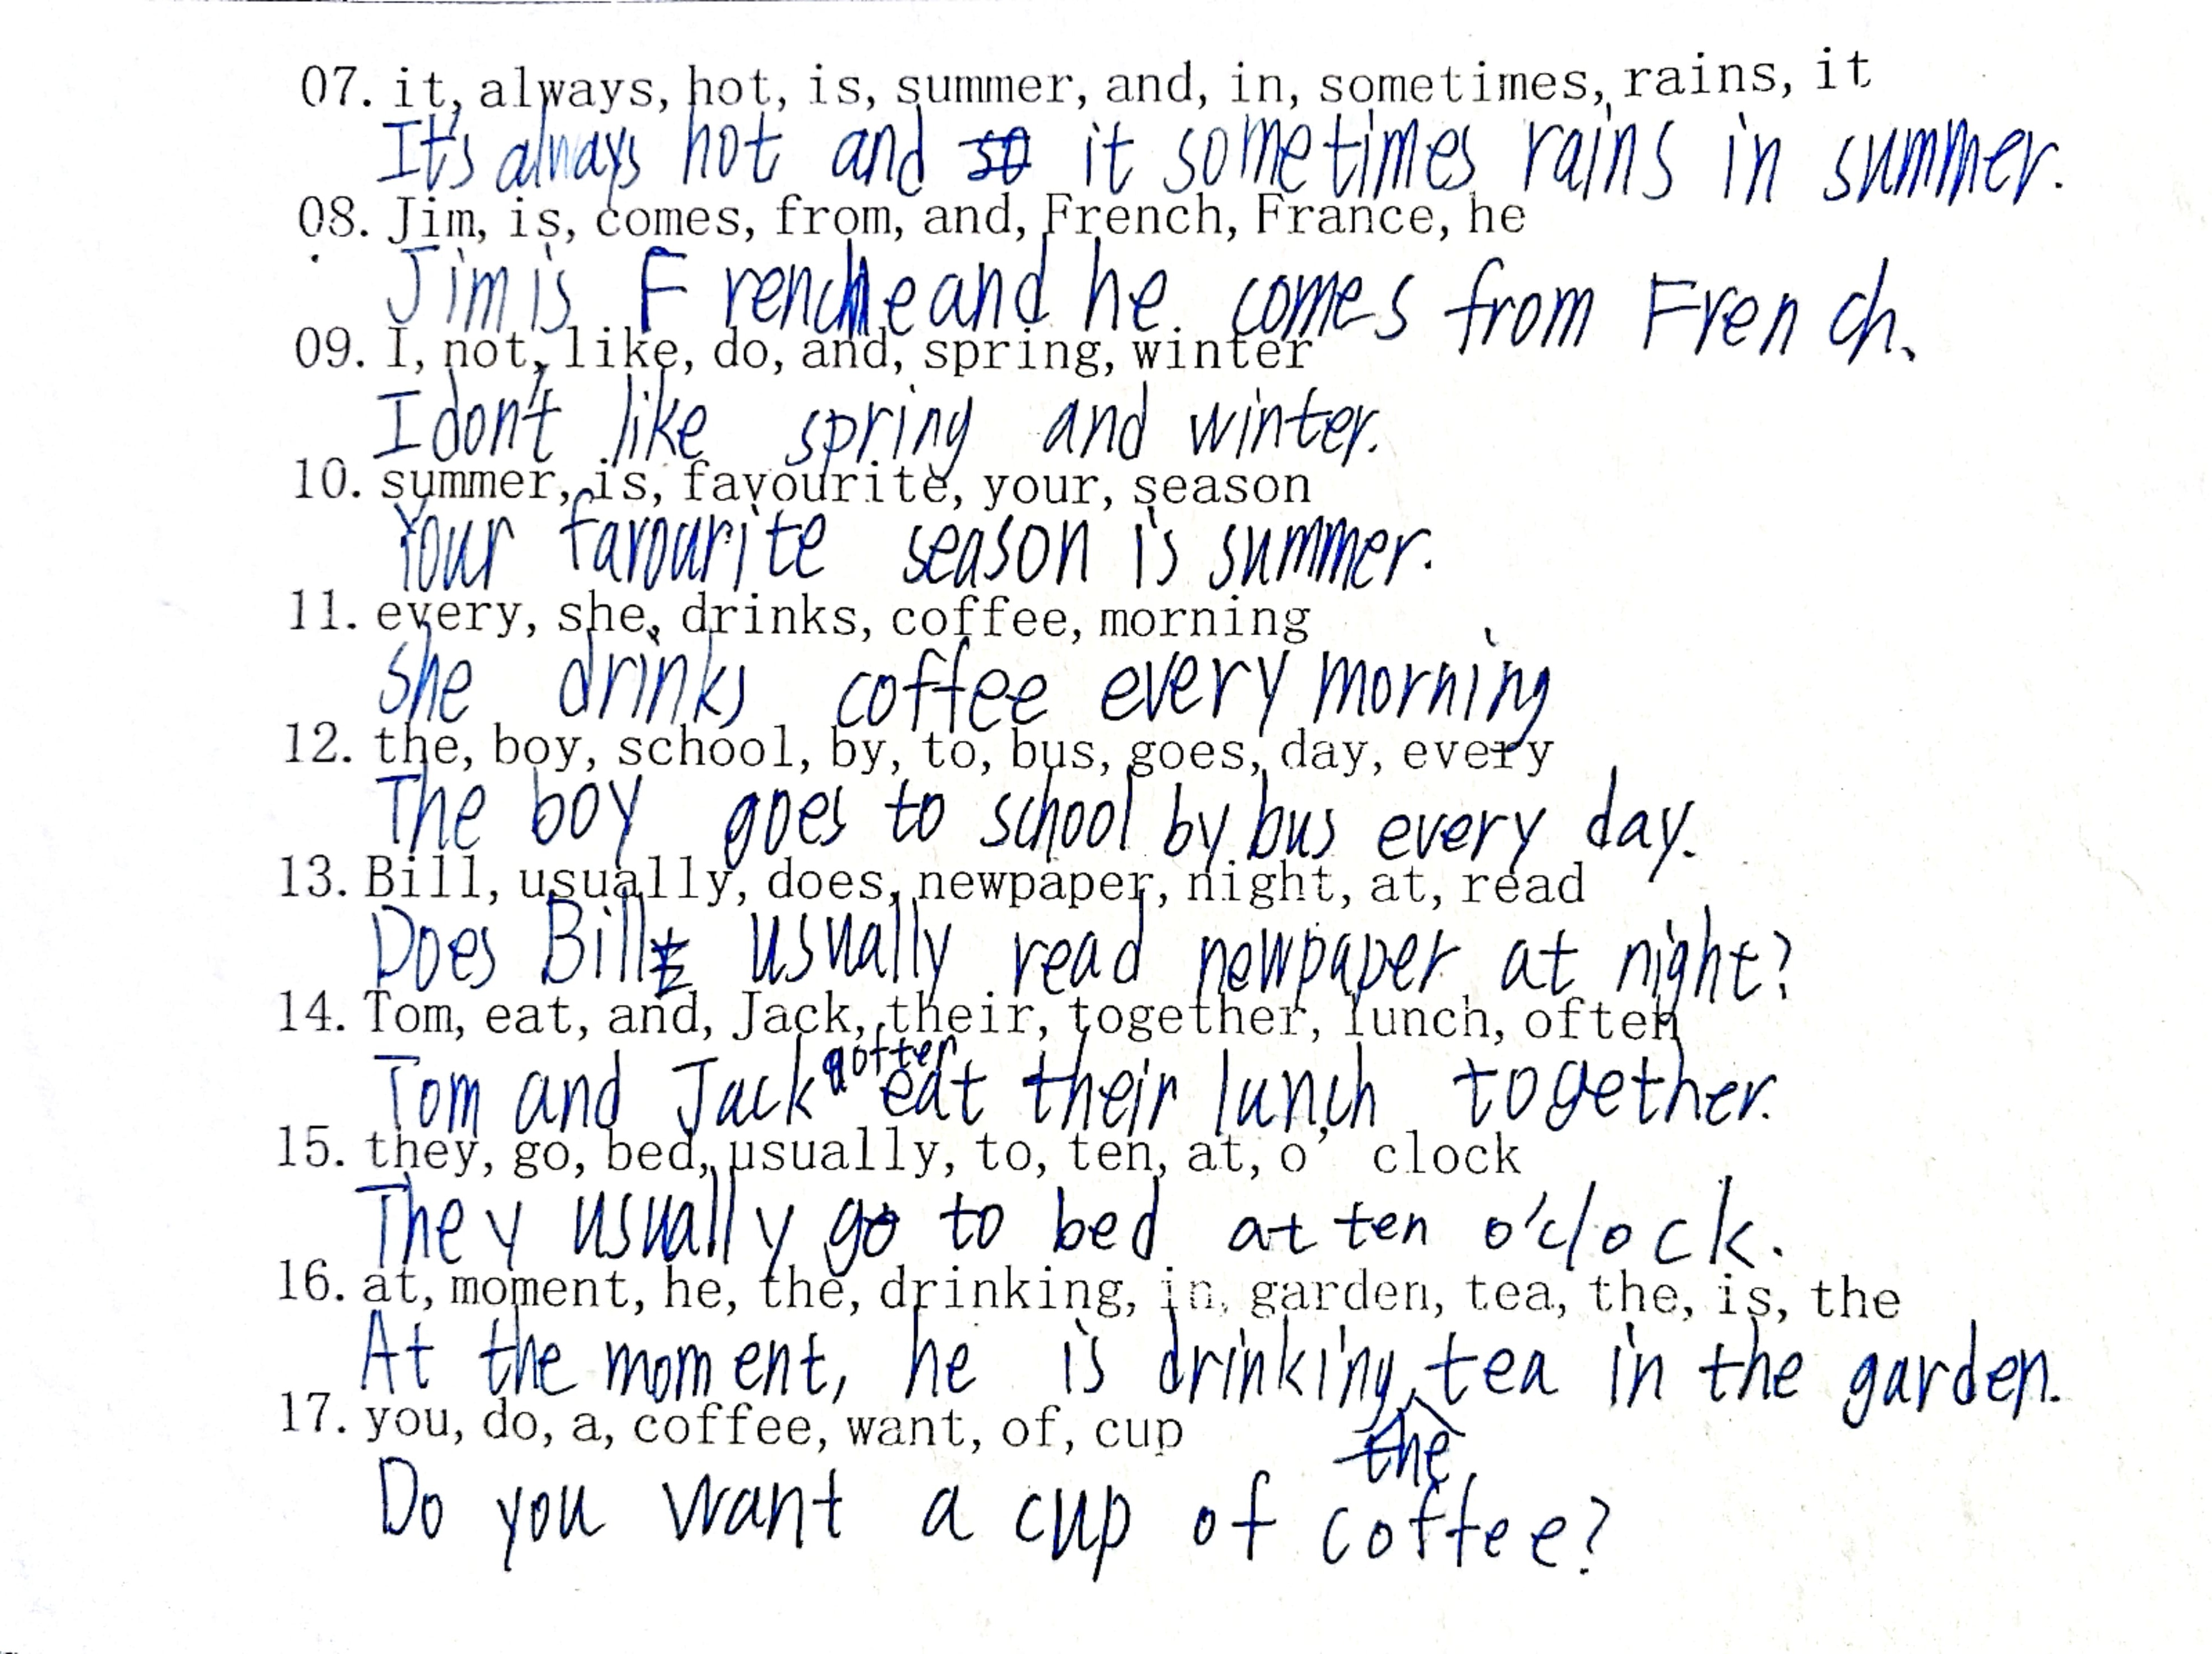 07. it, always, hot, is, summer, and, in, sometimes, rains, it
It's always hot and so it sometimes rains in summer.
08. Jim, is, comes, from, and, French, France, he
Jim is French and he comes from French.
09. I, not, like, do, and, spring, winter
I don't like spring and winter.
10. summer, is, favourite, your, season
Your favourite season is summer.
11. every, she, drinks, coffee, morning
She drinks coffee every morning
12. the, boy, school, by, to, bus, goes, day, every
The boy goes to school by bus every day.
13. Bill, usually, does, newpaper, night, at, read
Does Bill usually read newpaper at night?
14. Tom, eat, and, Jack, their, together, lunch, often
often
Tom and Jack eat their lunch together.
15. they, go, bed, usually, to, ten, at, o' clock
They usually go to bed at ten o'clock.
16. at, moment, he, the, drinking, in, garden, tea, the, is, the
At the moment, he is drinking tea in the garden.
17. you, do, a, coffee, want, of, cup
the
Do you want a cup of coffee?